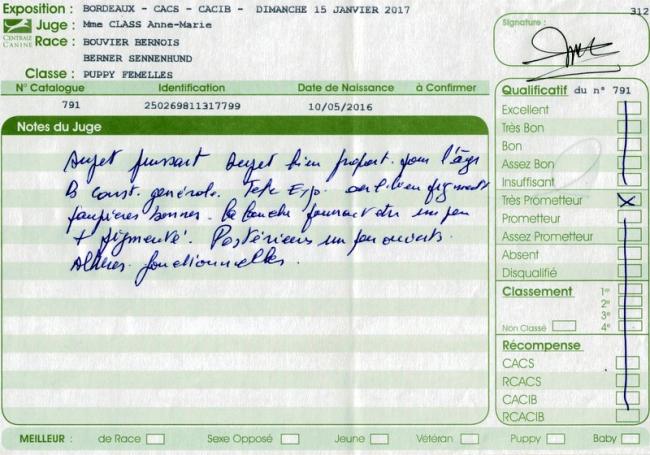 Exposition : BORDEAUX - CACS - CACIB - DIMANCHE 15 JANVIER 2017
312
Juge : Mme CLASS Anne-Marie
CENTRALE CANINE
Race : BOUVIER BERNOIS
BERNER SENNENHUND
Classe : PUPPY FEMELLES
Signature :
N° Catalogue Identification Date de Naissance à Confirmer
791 250269811317799 10/05/2016
Notes du Juge
Sujet puissant Sujet bien proport. pour l'âge
B const. générale. Tete Exp. oeil bien pigmenté
paupières bonnes. la bouche pourrait etre un peu
+ pigmenté. Postérieurs un peu ouverts.
Allures fonctionnelles.
Qualificatif du n° 791
Excellent
Très Bon
Bon
Assez Bon
Insuffisant
Très Prometteur X
Prometteur
Assez Prometteur
Absent
Disqualifié
Classement 1er
2e
3e
Non Classé 4e
Récompense
CACS
RCACS
CACIB
RCACIB
MEILLEUR : de Race Sexe Opposé Jeune Vétéran Puppy Baby